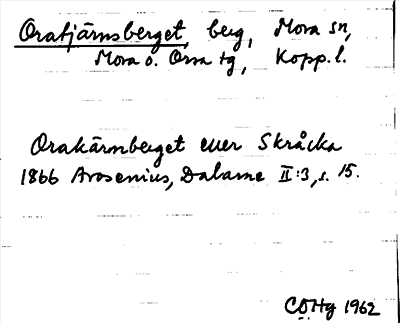 Oratjärnsberget, berg, Mora sn,
Mora o. Orsa tg, Kopp. l.
Orakärnberget eller Skråcka
1866 Arosenius, Dalarne II:3, s. 15.
COHg 1962